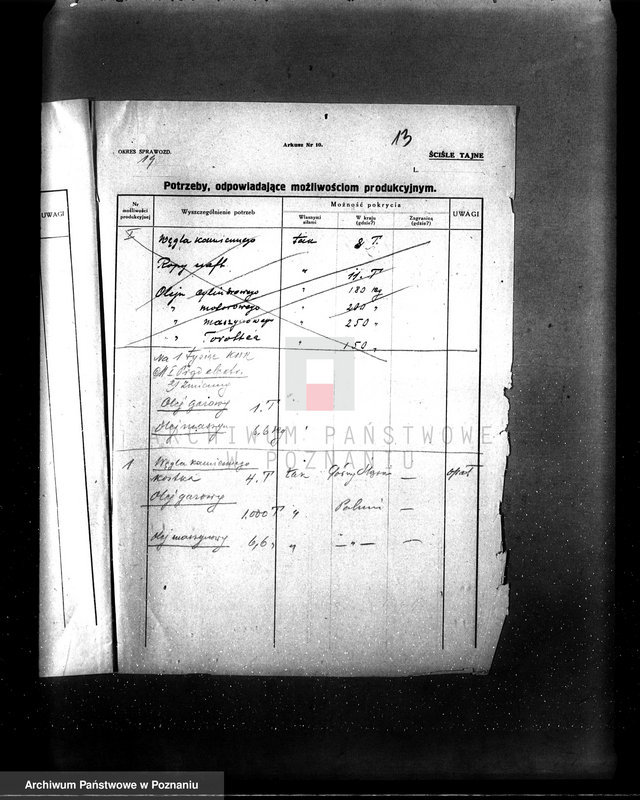 13
Arkusz Nr 10.
OKRES SPRAWOZD.
19
ŚCIŚLE TAJNE
L.
Potrzeby, odpowiadające możliwościom produkcyjnym.
UWAGI
Nr możliwości produkcyjnej
Wyszczególnienie potrzeb
Możność pokrycia
Własnymi siłami
W kraju (gdzie?)
Zagranicą (gdzie?)
UWAGI
I Węgla kamiennego tak 8 T.
Ropy naft. " 11. T
Oleju cylindrowego " 180 kg
" motorowego " 200 "
" maszynowego " 250 "
" " 150 "
Na 1
Olej gazowy 1. T
Olej maszy. 6,6 kg "
1 Węgla kamiennego
kostka 4. T tak Górny Śląsk — opał
Olej gazowy
1.000 T " —
Olej maszynowy 6,6 " " — " — —
ARCHIWUM PAŃSTWOWE
W POZNANIU
Archiwum Państwowe w Poznaniu